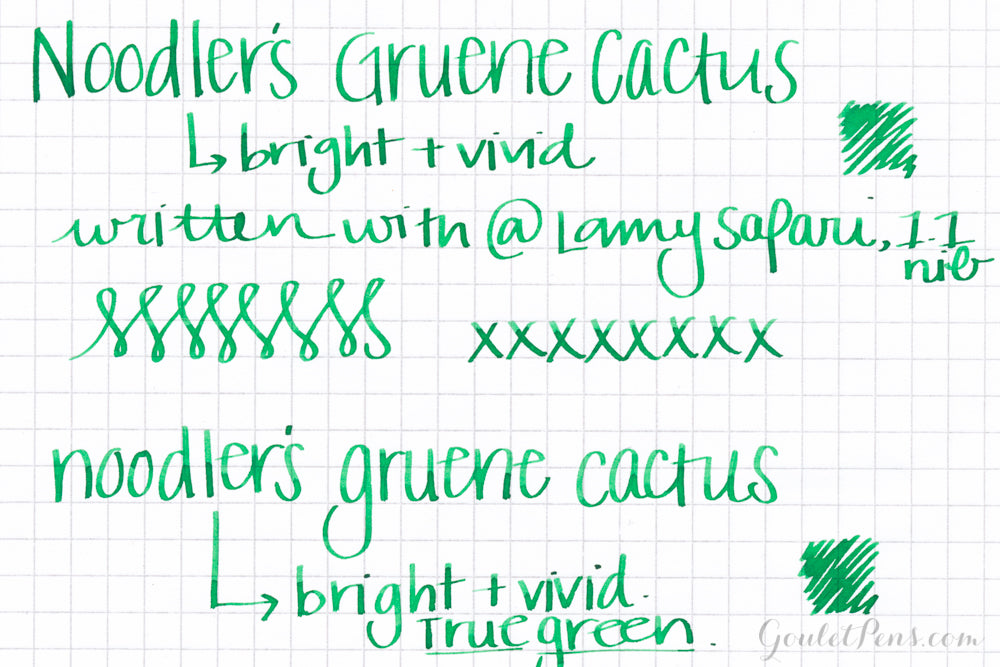 Noodler's Gruene Cactus
↳ bright + vivid
written with @ Lamy Safari, 1.1
nib
xxxxxxxx
noodler's gruene cactus
↳ bright + vivid.
True green.
GouletPens.com